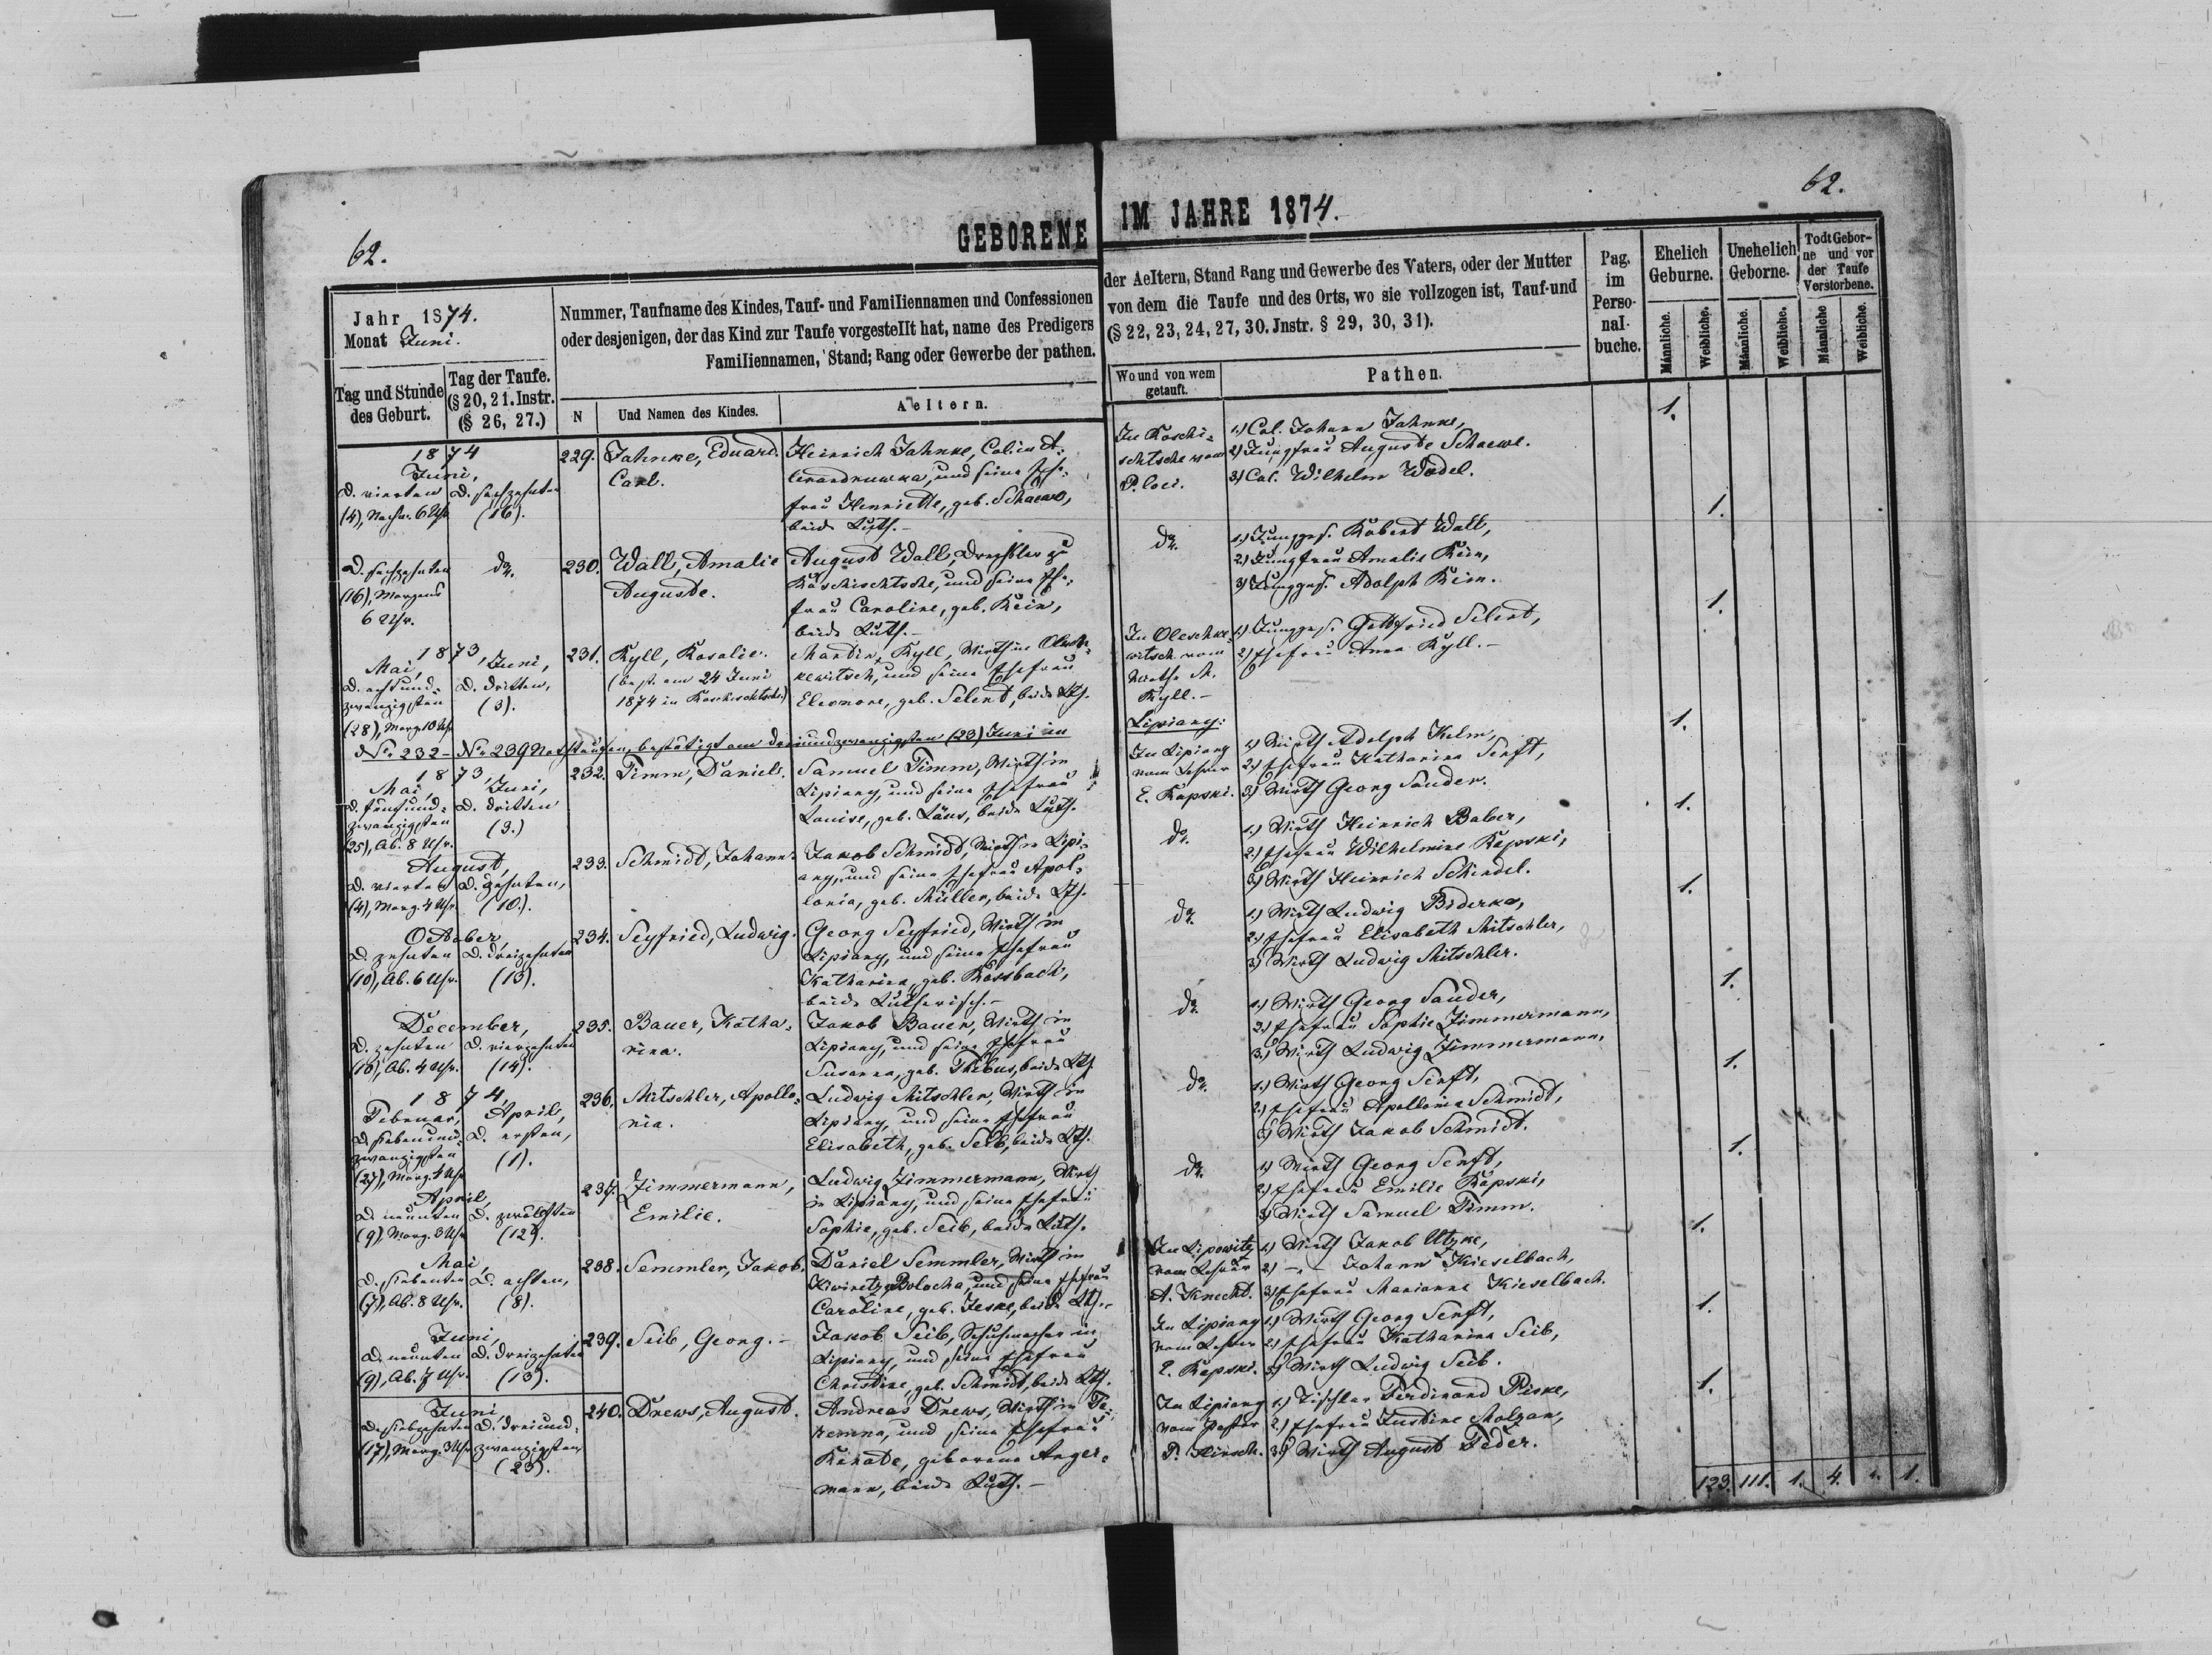 62.
GEBORENE
Jahr 1874.
Monat Juni.
Nummer, Taufname des Kindes, Tauf- und Familiennamen und Confessionen
oder desjenigen, der das Kind zur Taufe vorgestellt hat, name des Predigers
Familiennamen, Stand; Rang oder Gewerbe der pathen.
Tag und Stunde
des Geburt.
Tag der Taufe.
(§ 20, 21. Instr.
(§ 26, 27.)
N
Und Namen des Kindes.
Aeltern.
1874
Juni,
D. vierten
(4), Nachm. 6 Uhr
D. sechzehnten
(16).
229.
Jahnke, Eduard
Carl.
Heinrich Jahnke, Col. in A-
lexandruwka, und seine Ehe-
frau Henriette, geb. Schaewe,
beide Luth.-
D. sechzehnten
(16), Morgens
6 Uhr.
do.
230.
Wall, Amalie
Auguste.
August Wall, Drechsler zu
Koschischtsche, und seine Ehe-
frau Caroline, geb. Kein,
beide Luth.-
1873,
Mai,
D. acht und-
zwanzigsten
(28), Morg. 10 Uhr
Juni,
D. dritten,
(3).
231.
Kyll, Rosalie.
(best. am 24 Juni
1874 in Koschischtsche)
Martin Kyll, Wirth in Olesch-
kewitsch, und seine Ehefrau
Eleonore, geb. Selent, beide Lth.
No. 232 - No. 239 Nothtaufen, bestätigt am dreiundzwanzigsten (23) Juni in
1873,
Mai,
D. fünfund-
zwanzigsten
(25), Ab. 8 Uhr.
Juni,
D. dritten
(3.)
232.
Timm, Daniel.
Samuel Timm, Wirth in
Lipiany, und seine Ehefrau
Louise, geb. Läns, beide Luth.
August,
D. vierten
(4), Morg. 4 Uhr
D. zehnten,
(10.).
233.
Schmidt, Johann.
Jakob Schmidt, Wirth in Lipi-
any, und seine Ehefrau Apol-
lonia, geb. Müller, beide Lth.
October,
D. zehnten
(10), Ab. 6 Uhr.
D. dreizehnten
(13).
234.
Seyfried, Ludwig.
Georg Seyfried, Wirth in
Lipiany, und seine Ehefrau
Katharina, geb. Rossbach,
beide Lutherisch.-
December,
D. zehnten
(10), Ab. 4 Uhr.
D. vierzehnten
(14).
235.
Bauer, Katha-
rina.
Jakob Bauer, Wirth in
Lipiany, und seine Ehefrau
Susanna, geb. Thebus, beide Lth.
1874,
Februar,
D. siebenund-
zwanzigsten
(27), Morg. 4 Uhr
April,
D. ersten,
(1).
236.
Mitschler, Apollo-
nia.
Ludwig Mitschler, Wirth in
Lipiany, und seine Ehefrau
Elisabeth, geb. Seib, beide Lth.
April,
D. neunten
(9), Morg. 3 Uhr
D. zwölften
(12).
237.
Zimmermann,
Emilie.
Ludwig Zimmermann, Wirth
in Lipiany, und seine Ehefrau
Sophie, geb. Seib, beide Luth.
Mai,
D. siebenten
(7), Ab. 8 Uhr.
D. achten,
(8).
238.
Semmler, Jakob.
Daniel Semmler, Wirth in
Bolocha, und seine Ehefrau
Caroline, geb. Jeske, beide Lth.-
Juni,
D. neunten
(9), Ab. 7 Uhr.
D. dreizehnten
(13).
239.
Seib, Georg.-
Jakob Seib, Schuhmacher in
Lipiany, und seine Ehefrau
Christine, geb. Schmidt, beide Lth.
Juni,
D. siebzehnten
(17), Morg. 3 Uhr
D. dreiund-
zwanzigsten
(23).
240.
Drews, August.
Andreas Drews, Wirth in
und seine Ehefrau
Renate, geborene Anger-
mann, beide Luth.-
62.
IM JAHRE 1874.
der Aeltern, Stand Rang und Gewerbe des Vaters, oder der Mutter
von dem die Taufe und des Orts, wo sie vollzogen ist, Tauf-und
(§ 22, 23, 24, 27, 30. Jnstr. § 29, 30, 31).
Wo und von wem
getauft.
Pathen.
Pag.
im
Perso-
nal-
buche.
Ehelich
Geburne.
Unehelich
Geborne.
Todt Gebor-
ne und vor
der Taufe
Verstorbene.
Männliche.
Weibliche.
Männliche.
Weibliche.
Männliche
Weibliche.
In Koschi-
schtsche vom
P. loci.
1.) Col. Johann Jahnke,
2) Jungfrau Auguste Schaewe.
3) Col. Wilhelm Wodel.
1.
do.
1.) Jungges. Robert Wall,
2.) Jungfrau Amalie Kein,
3) Jungges. Adolph Kein.
1.
In Oleschke-
witsch vom
Wirthe M.
Kyll.-
1.) Jungges. Gottfried Selent,
2.) Ehefrau Anna Kyll.-
1.
Lipiany:
In Lipiany
vom Lehrer
E. Kapski.
1.) Wirth Adolph Kelm,
2.) Ehefrau Katharina Senft,
3) Wirth Georg Sander.
1.
do.
1.) Wirth Heinrich Baber,
2.) Ehefrau Wilhelmine Kapski,
3) Wirth Heinrich Schindel.
1.
do.
1.) Wirth Ludwig Biderka,
2.) Ehefrau Elisabeth Mitschler,
3) Wirth Ludwig Mitschler.
1.
do.
1.) Wirth Georg Sander,
2.) Ehefrau Sophie Zimmermann,
3.) Wirth Ludwig Zimmermann,
1.
do.
1.) Wirth Georg Senft,
2.) Ehefrau Apollonia Schmidt,
3) Wirth Jakob Schmidt.
1.
do.
1.) Wirth Georg Senft,
2.) Ehefrau Emilie Kapski,
3) Wirth Samuel Timm.
1.
In Lipowitz
vom Lehrer
A. Knecht.
1.) Wirth Jakob Utzke,
2.) -„- Johann Kieselbach,
3) Ehefrau Marianne Kieselbach.
1.
In Lipiany
vom Lehrer
E. Kapski.
1.) Wirth Georg Senft,
2.) Ehefrau Katharina Seib,
3) Wirth Ludwig Seib.
1.
In Lipiany
vom Pastor
P. Hirsch.
1.) Tischler Ferdinand Piske,
2.) Ehefrau Justine Molzan,
3.) Wirth August Feder.
1.
123. 111. 1. 4. 1. 1.